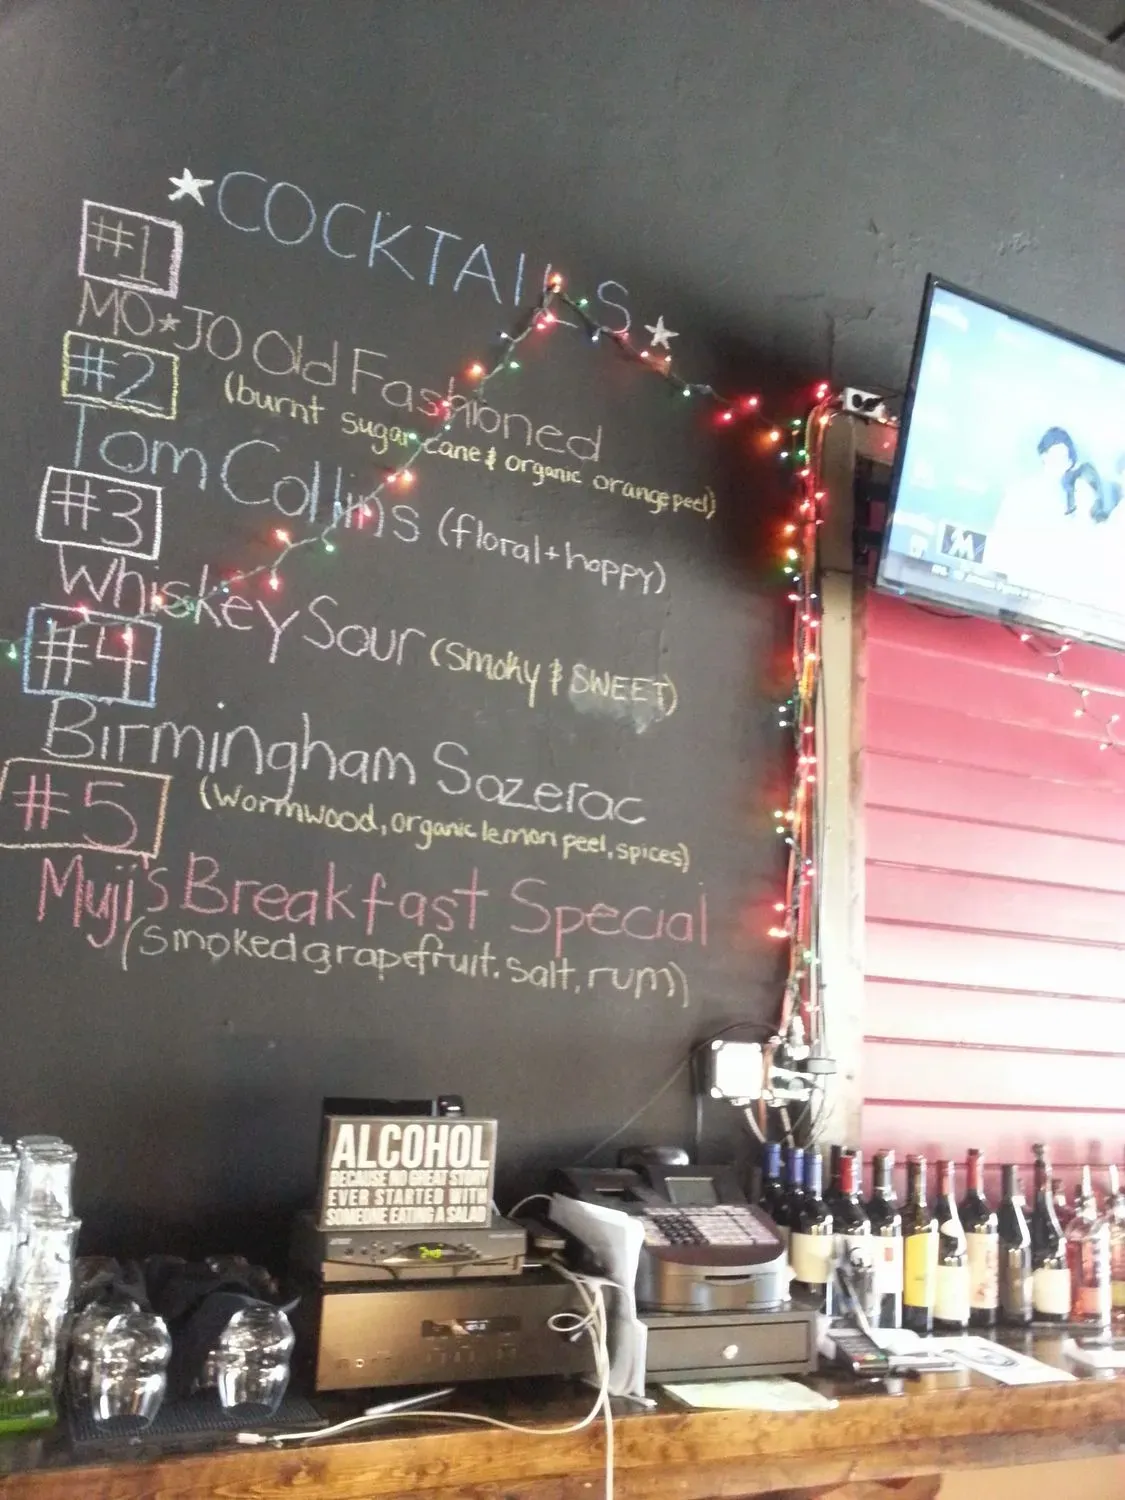 ★COCKTAILS★
#1
MO★JO Old Fashioned
(burnt sugar cane & organic orange peel)
#2
Tom Collins (floral + hoppy)
#3
Whiskey Sour (smoky & SWEET)
#4
Birmingham Sazerac
(wormwood, organic lemon peel, spices)
#5
Muji's Breakfast Special
(smoked grapefruit, salt, rum)
ALCOHOL
BECAUSE NO GREAT STORY
EVER STARTED WITH
SOMEONE EATING A SALAD